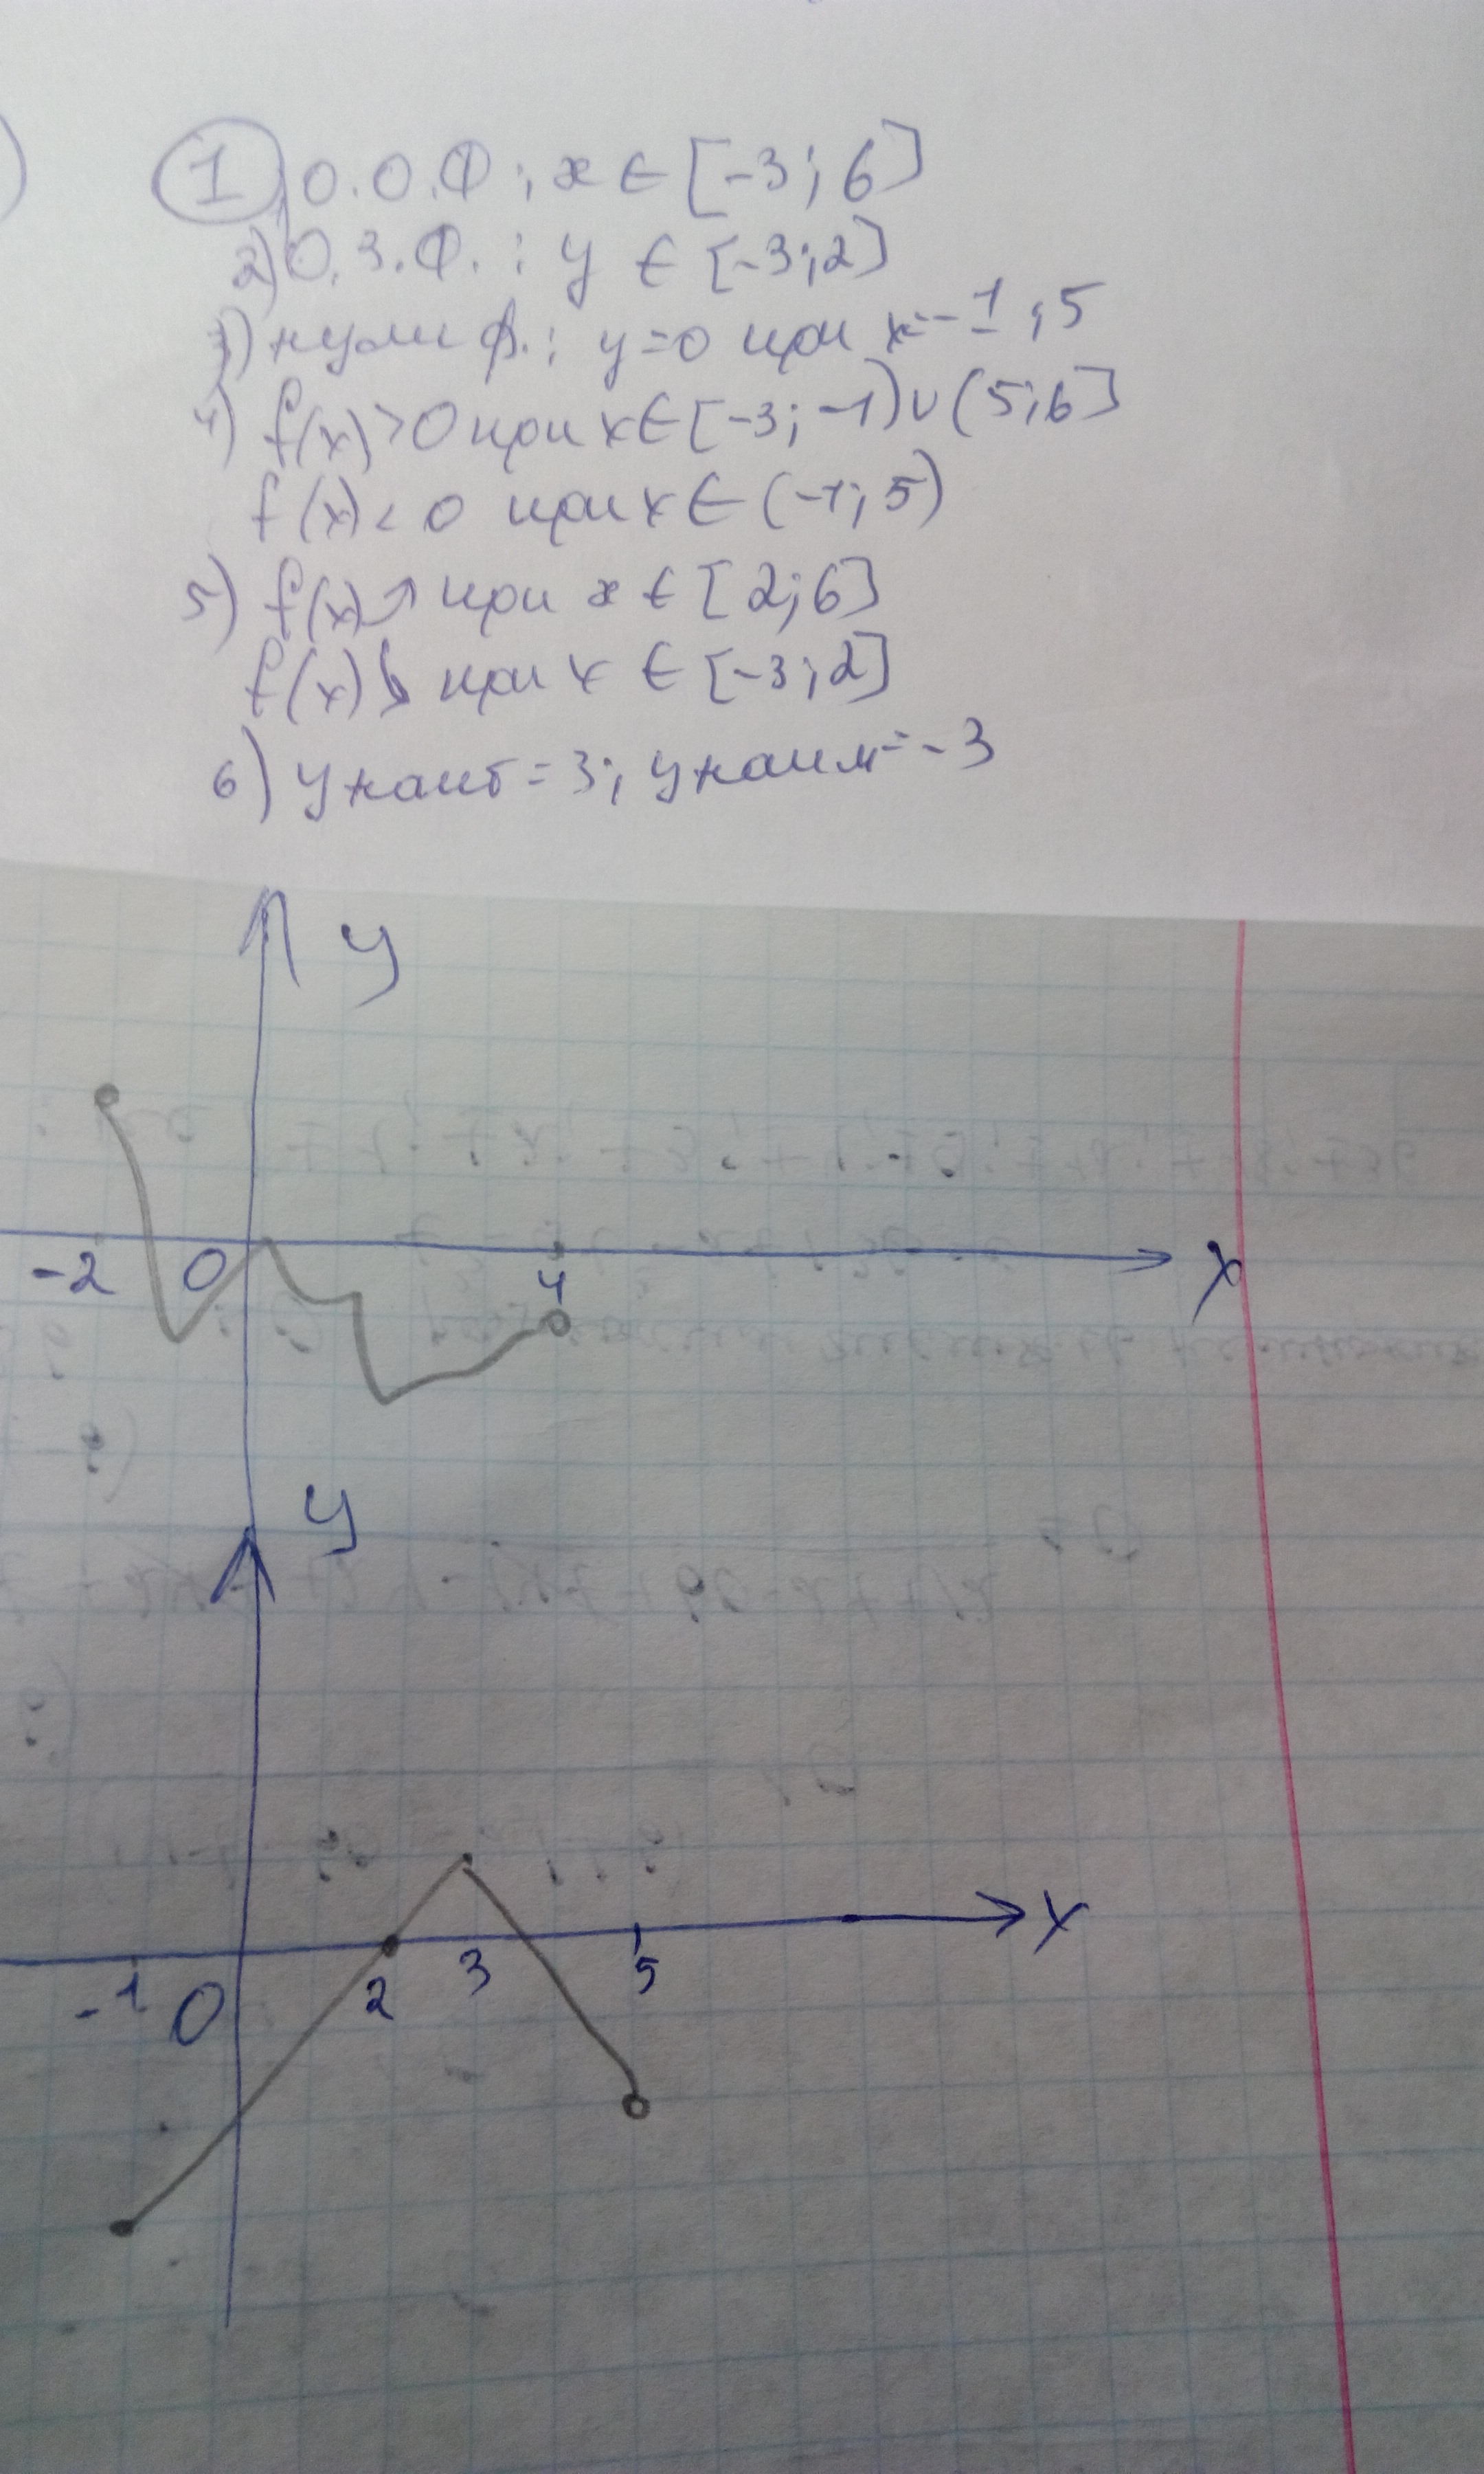 1) О.О.Ф; x ∈ [-3; 6]
2) О.З.Ф. : y ∈ [-3; 2]
3) нули ф.: y=0 при x=-1; 5
4) f(x)>0 при x∈[-3; -1)∪(5;6]
f(x)<0 при x∈(-1; 5)
5) f(x)↗ при x∈[2;6]
f(x)↘ при x∈[-3;2]
6) yнаиб=3; yнаим=-3
y
-2 0 4 x
y
-1 0 2 3 5 x